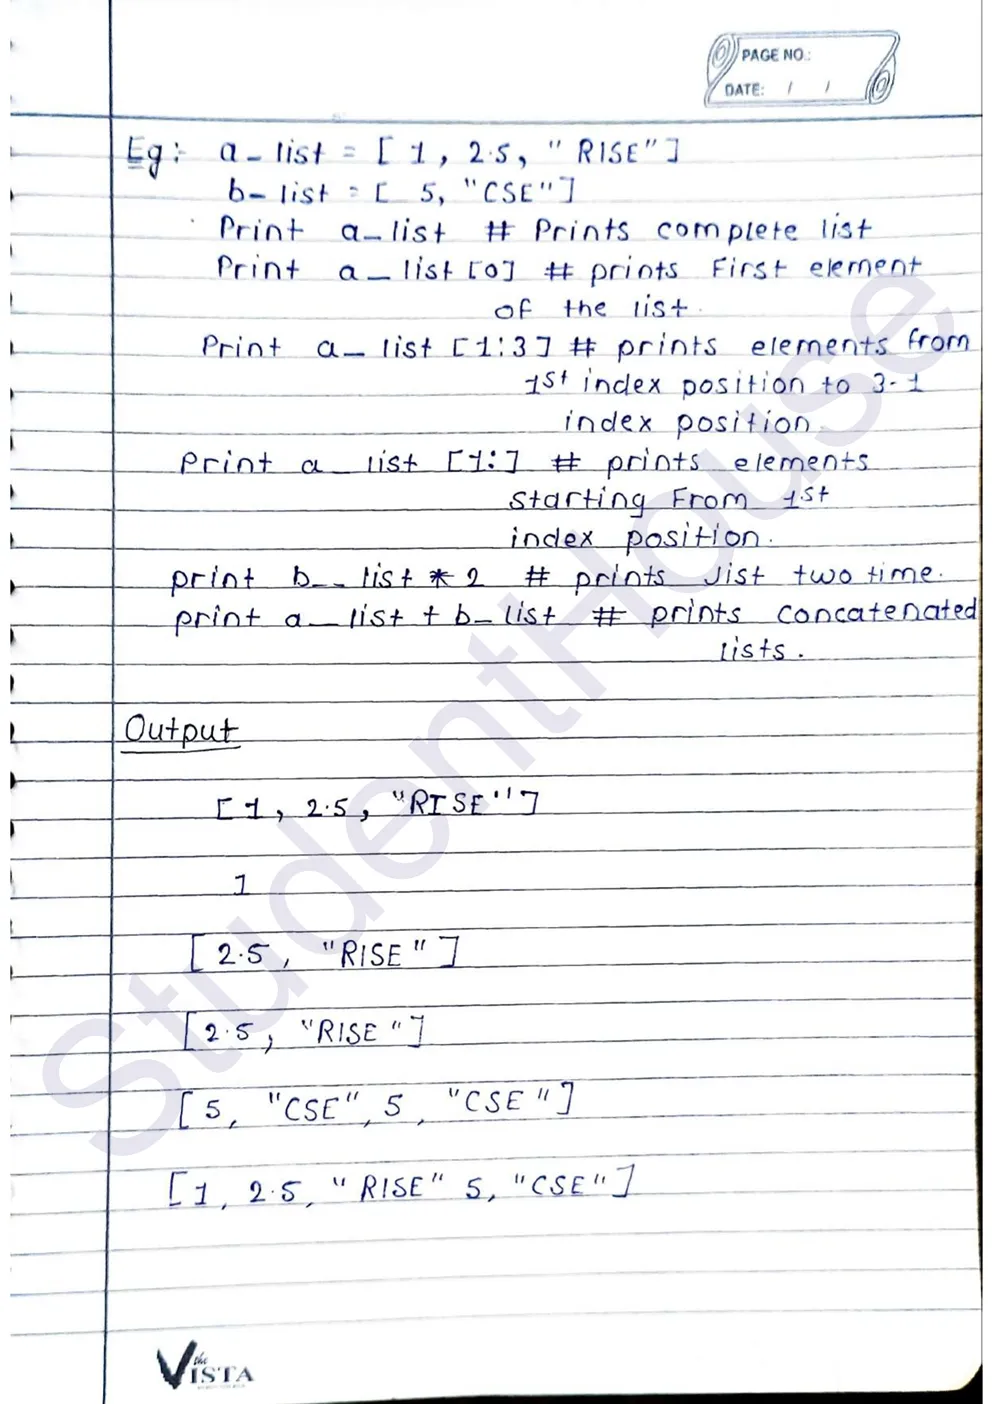 PAGE NO.:
DATE: / /
Eg:- a_list = [ 1, 2.5, " RISE"]
b_list = [ 5, "CSE"]
Print a_list # Prints complete list
Print a_list [0] # prints First element
of the list.
Print a_list [1:3] # prints elements from
1st index position to 3-1
index position.
Print a_list [1:] # prints elements
starting From 1st
index position.
print b_list * 2 # prints list two time.
print a_list + b_list # prints concatenated
lists.
Output
[1, 2.5, "RISE"]
1
[2.5, "RISE"]
[2.5, "RISE"]
[5, "CSE", 5, "CSE"]
[1, 2.5, "RISE" 5, "CSE"]
StudentHouse
the
VISTA